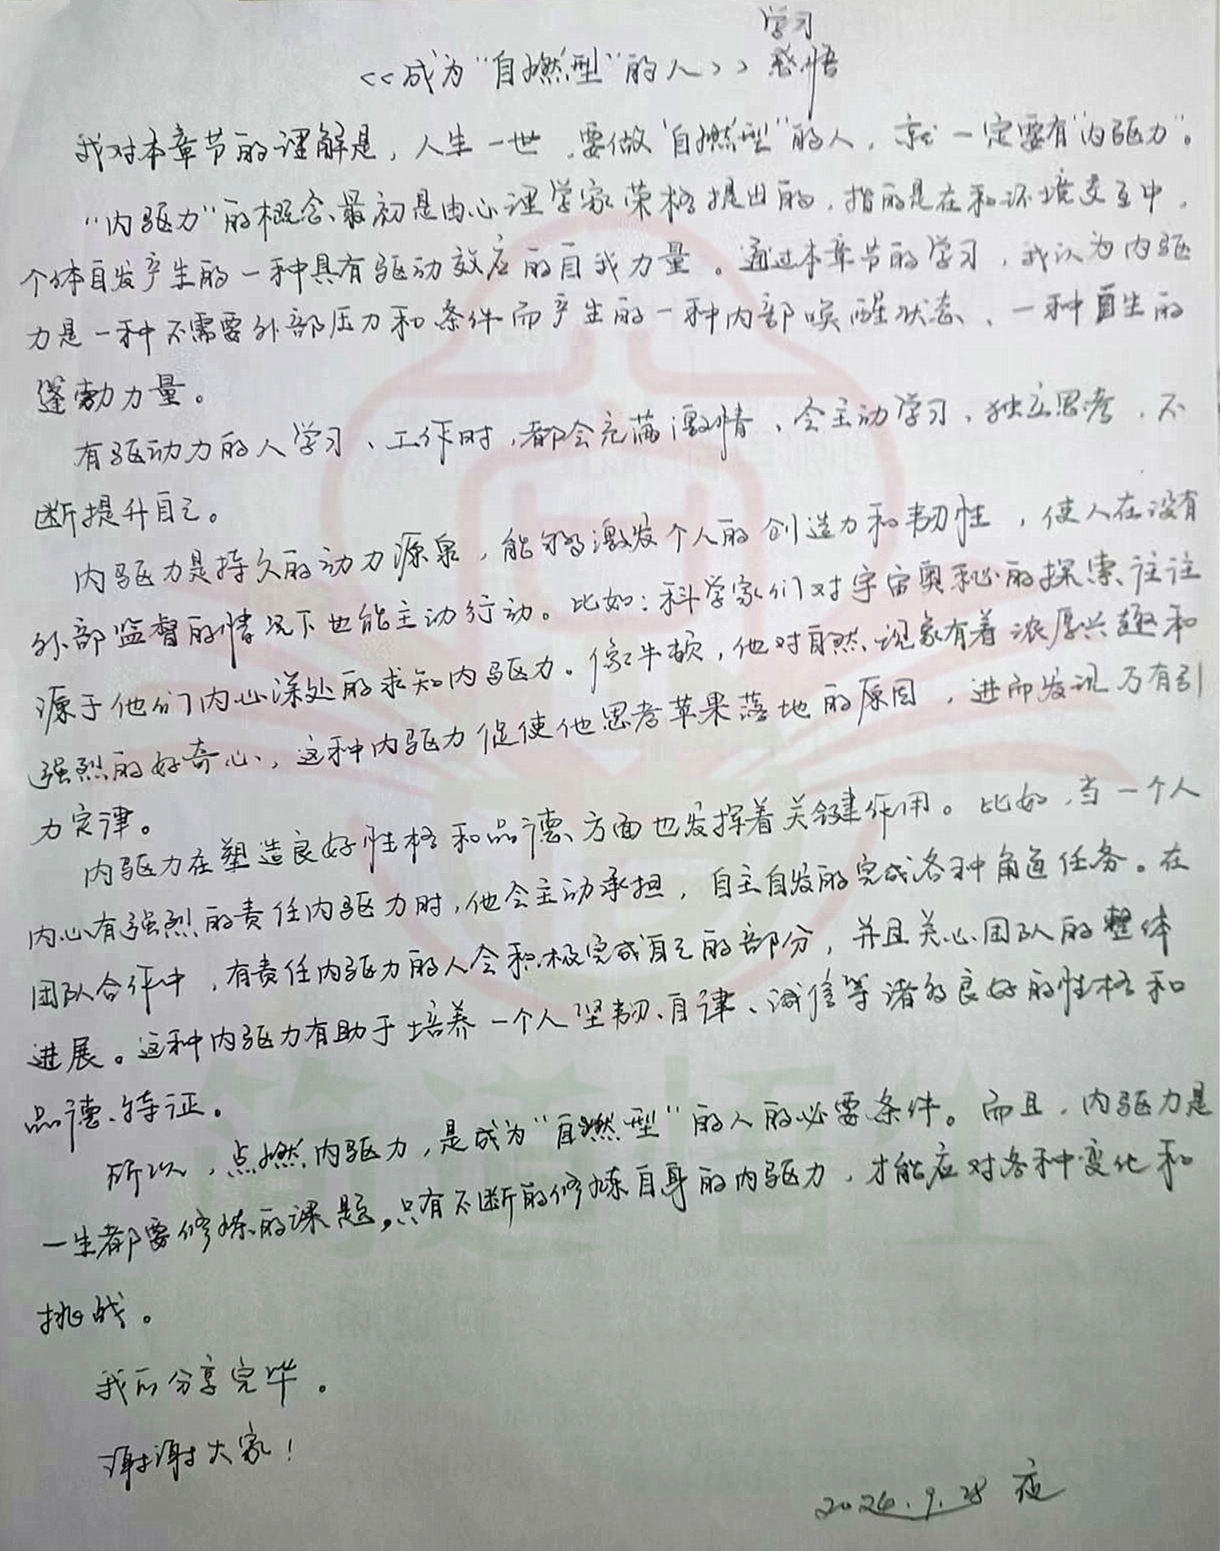 学习
<<成为“自燃型”的人>> 感悟
我对本章节的理解是，人生一世，要做“自燃型”的人，就一定要有“内驱力”。
“内驱力”的概念、最初是由心理学家荣格提出的，指的是在和环境交互中，
个体自发产生的一种具有驱动效应的自我力量。通过本章节的学习，我认为内驱
力是一种不需要外部压力和条件而产生的一种内部唤醒状态、一种自生的
蓬勃力量。
有驱动力的人学习、工作时，都会充满激情、会主动学习、独立思考，不
断提升自己。
内驱力是持久的动力源泉，能够激发个人的创造力和韧性，使人在没有
外部监督的情况下也能主动行动。比如：科学家们对宇宙奥秘的探索、往往
源于他们内心深处的求知内驱力。像牛顿，他对自然现象有着浓厚兴趣和
强烈的好奇心，这种内驱力促使他思考苹果落地的原因，进而发现万有引
力定律。
内驱力在塑造良好性格和品德方面也发挥着关键作用。比如，当一个人
内心有强烈的责任内驱力时，他会主动承担，自主自发的完成各种角色任务。在
团队合作中，有责任内驱力的人会积极完成自己的部分，并且关心团队的整体
进展。这种内驱力有助于培养一个人坚韧、自律、诚信等诸多良好的性格和
品德特征。
所以，点燃内驱力，是成为“自燃型”的人的必要条件。而且，内驱力是
一生都要修炼的课题。只有不断的修炼自身的内驱力，才能应对各种变化和
挑战。
我的分享完毕。
谢谢大家！
2024.9.28 夜